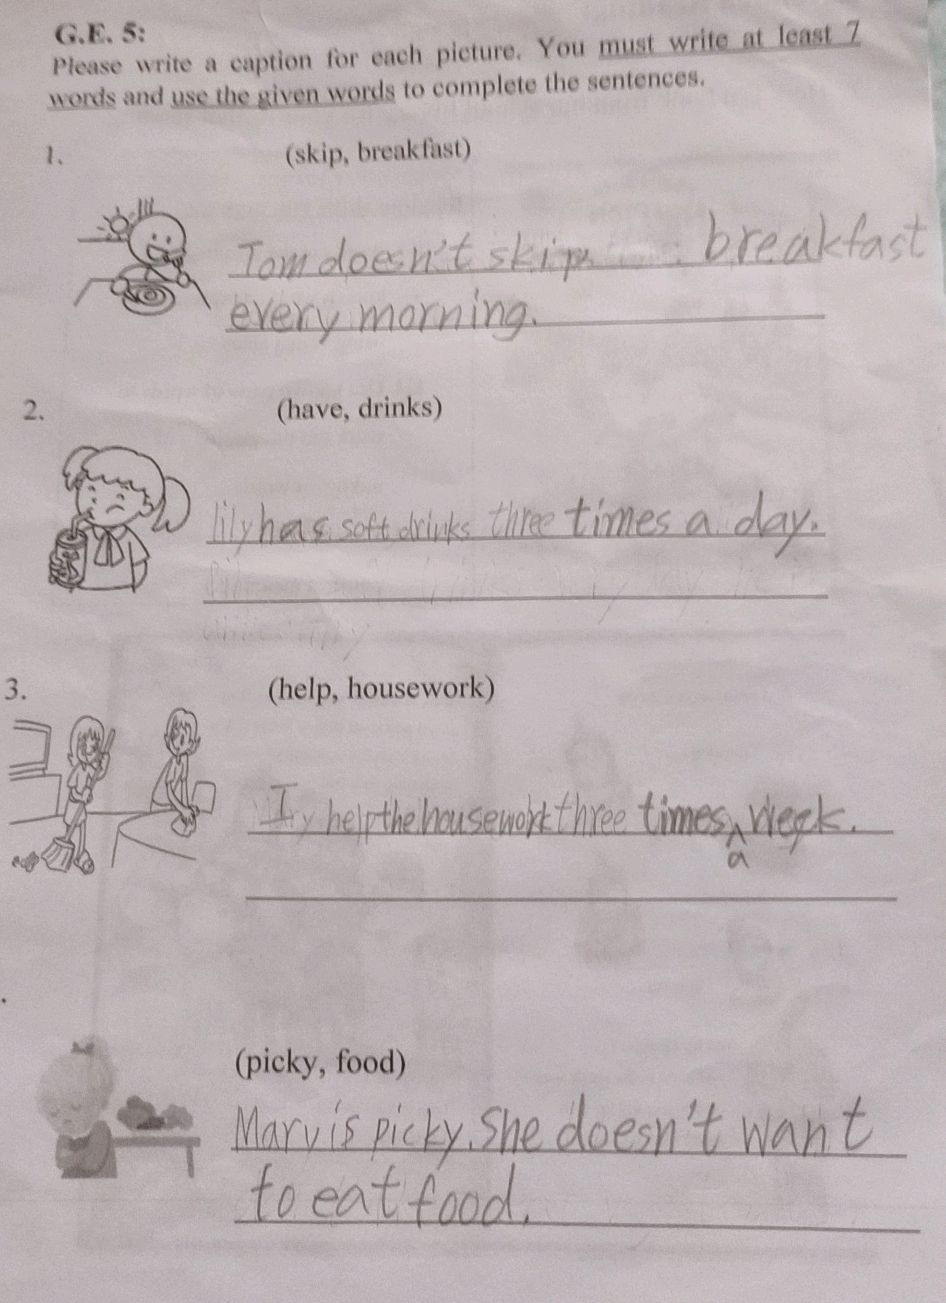 G.E. 5:
Please write a caption for each picture. You must write at least 7
words and use the given words to complete the sentences.
1. (skip, breakfast)
Tom doesn't skip breakfast
every morning.
2. (have, drinks)
lily has soft drinks three times a day.
3. (help, housework)
I help the housework three times a week.
(picky, food)
Mary is picky. She doesn't want
to eat food.